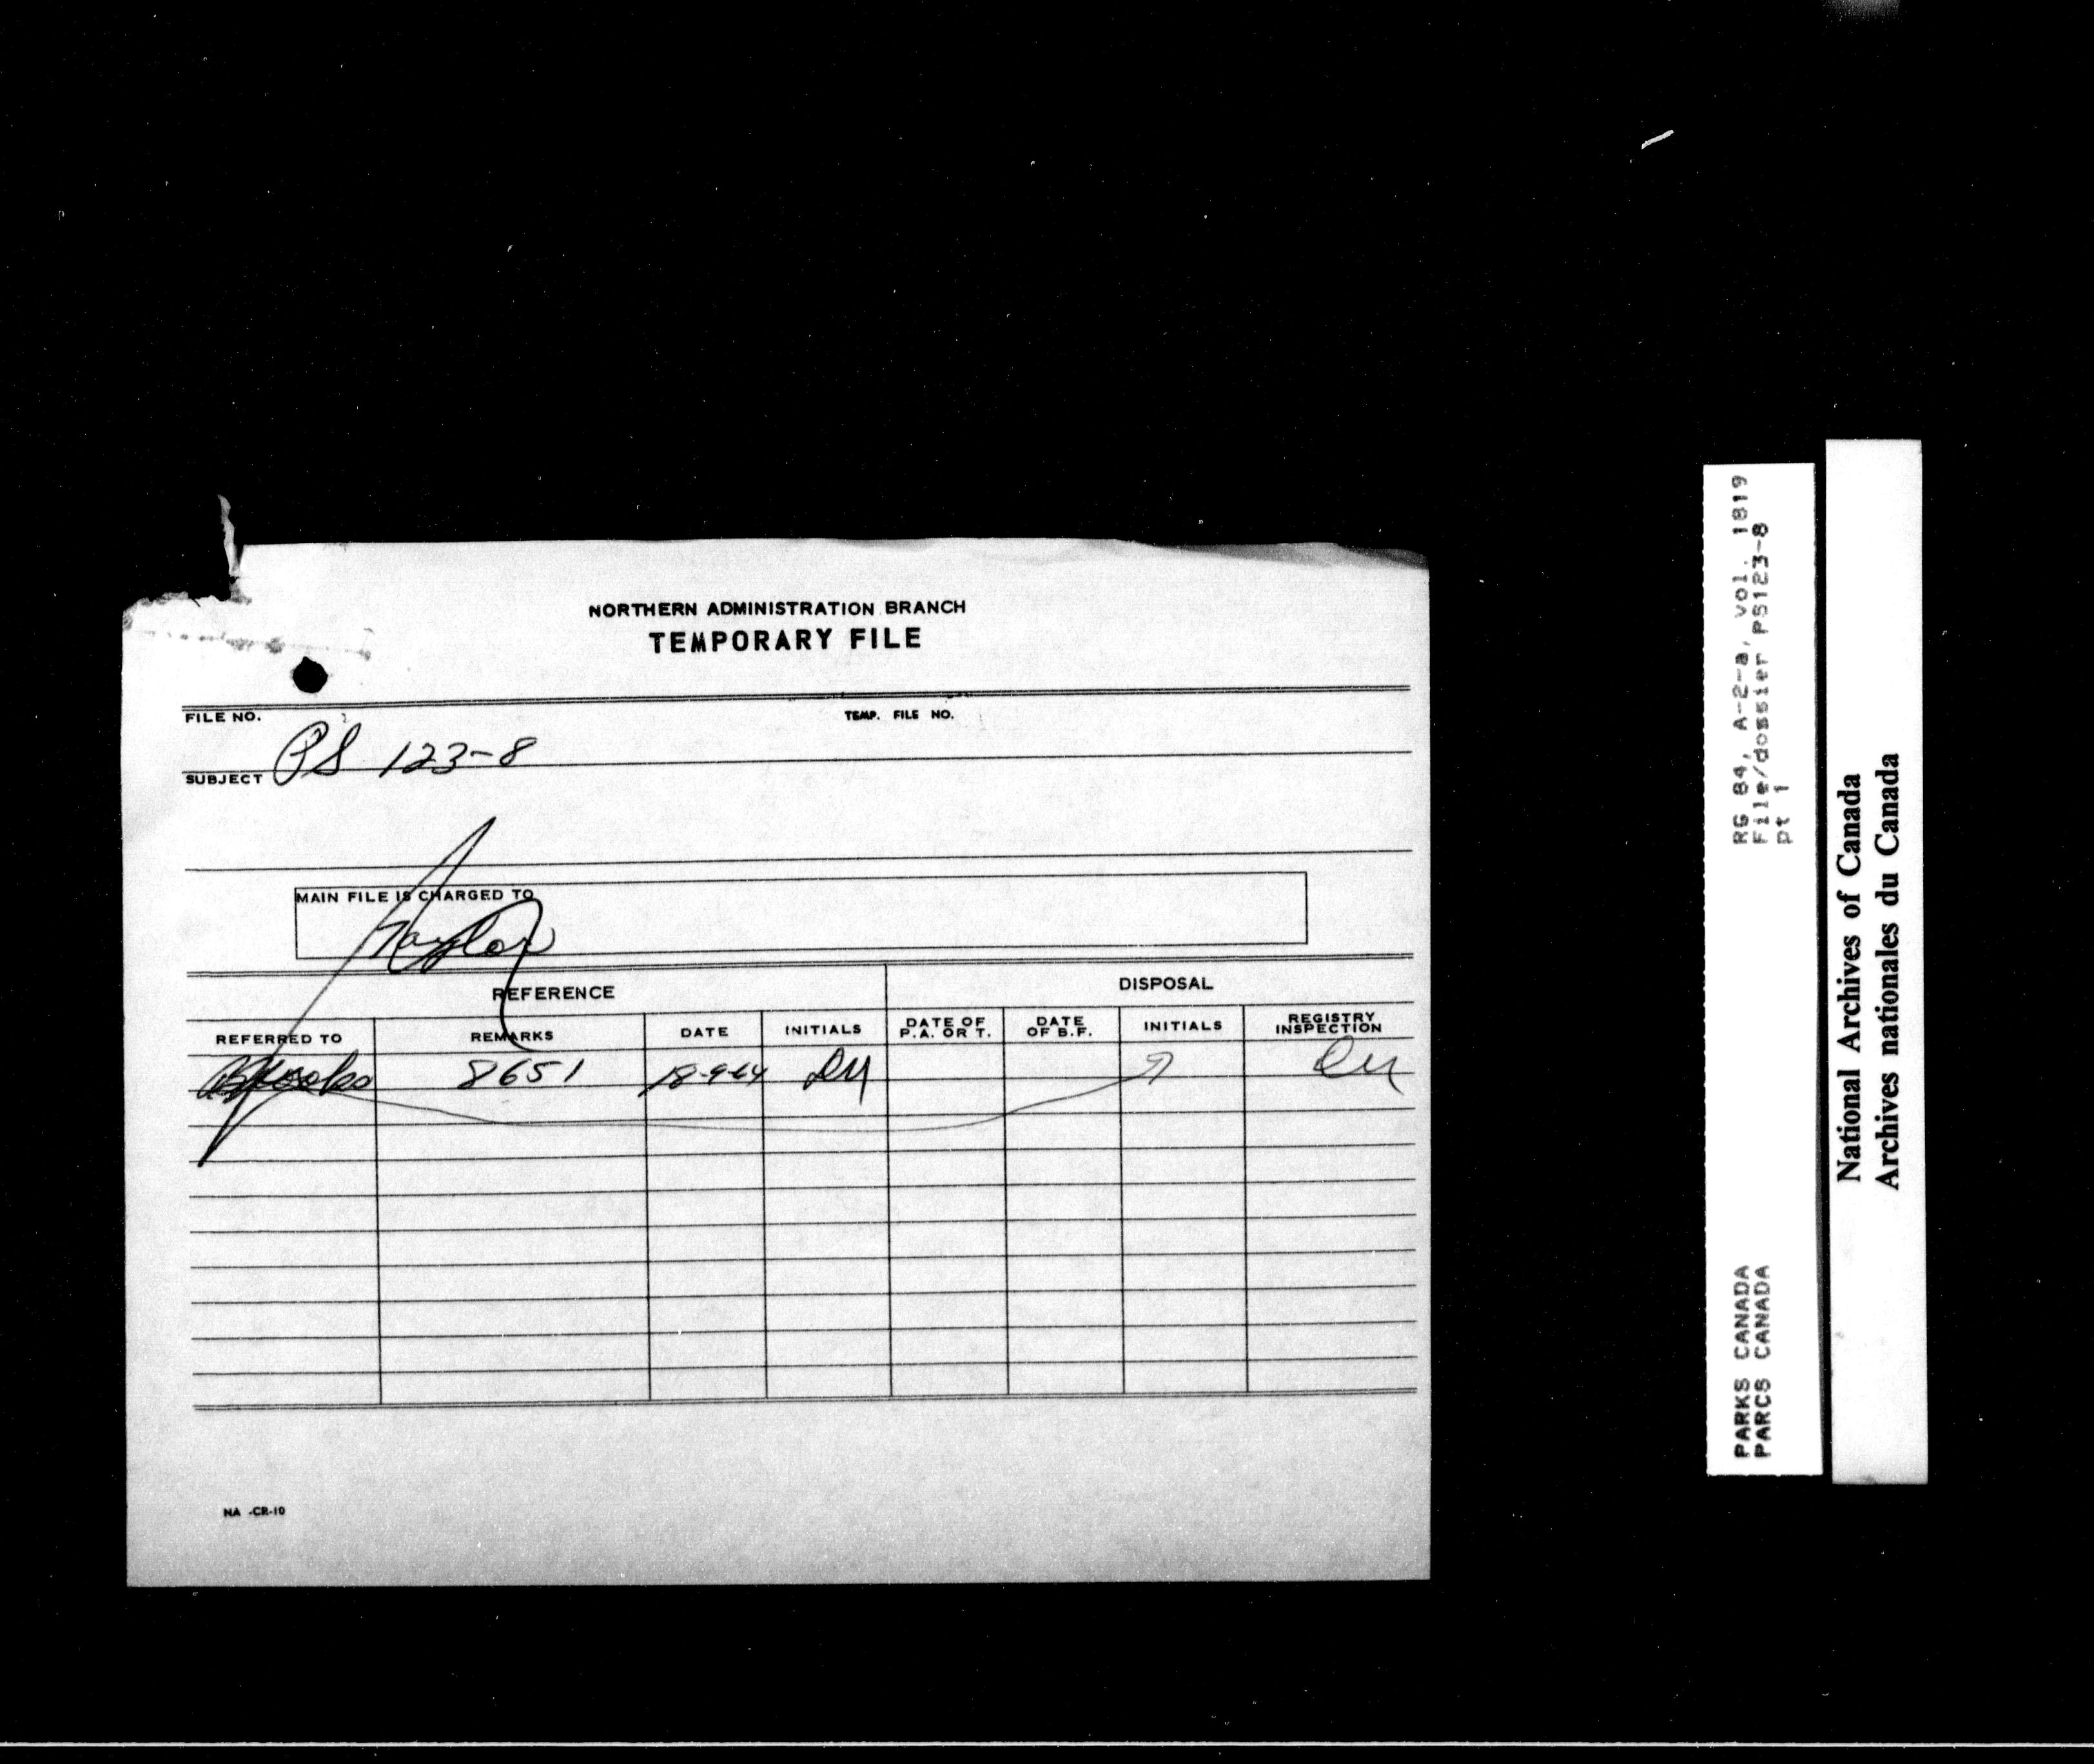 NORTHERN ADMINISTRATION BRANCH
TEMPORARY FILE
FILE NO. PS 123-8
TEMP. FILE NO.
SUBJECT
MAIN FILE IS CHARGED TO
Naylor
REFERENCE
DISPOSAL
REFERRED TO REMARKS DATE INITIALS DATE OF P.A. OR T. DATE OF B.F. INITIALS REGISTRY INSPECTION
8651 18-9-64
NA -CR-10
RG 84, A-2-a, vol. 1819
File/dossier PS123-8
pt 1
PARKS CANADA
PARCS CANADA
National Archives of Canada
Archives nationales du Canada